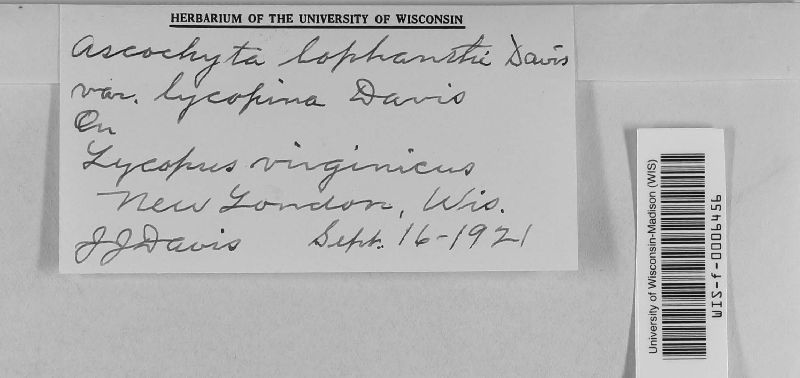 HERBARIUM OF THE UNIVERSITY OF WISCONSIN
Ascochyta lophanthi Davis
var. lycopina Davis
On
Lycopus virginicus
New London, Wis.
J J Davis Sept. 16-1921
University of Wisconsin-Madison (WIS)
WIS-f-0006456